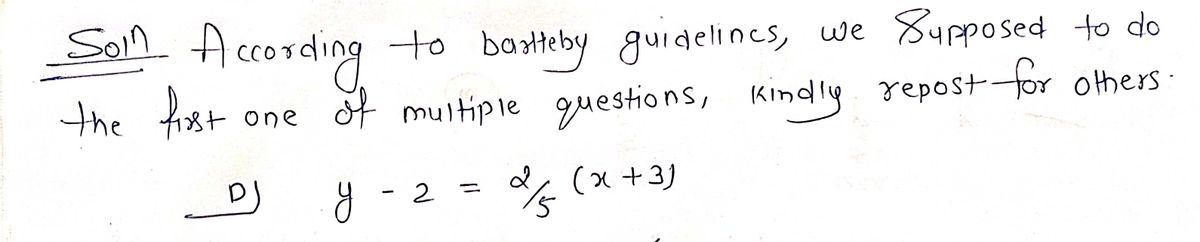 Soln According to bartleby guidelines, we Supposed to do
the first one of multiple questions, kindly repost for others.
D) y - 2 = 2/5 (x + 3)